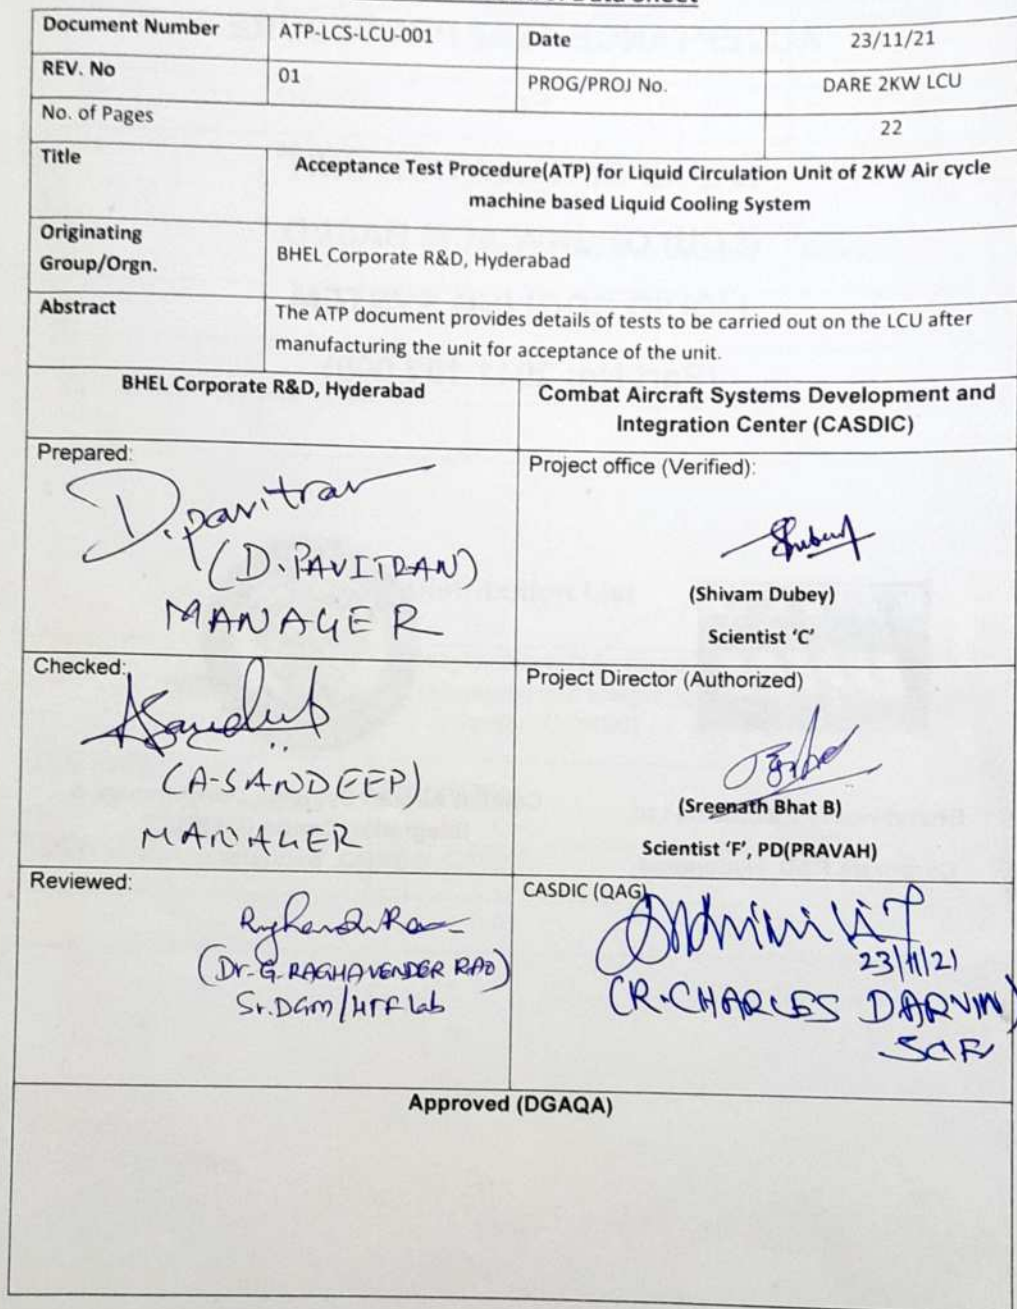 Document Number ATP-LCS-LCU-001 Date 23/11/21
REV. No 01 PROG/PROJ No. DARE 2KW LCU
No. of Pages 22
Title Acceptance Test Procedure(ATP) for Liquid Circulation Unit of 2KW Air cycle
machine based Liquid Cooling System
Originating
Group/Orgn. BHEL Corporate R&D, Hyderabad
Abstract The ATP document provides details of tests to be carried out on the LCU after
manufacturing the unit for acceptance of the unit.
BHEL Corporate R&D, Hyderabad
Combat Aircraft Systems Development and
Integration Center (CASDIC)
Prepared:
D.pavitran
(D.PAVITRAN)
MANAGER
Project office (Verified):
(Shivam Dubey)
Scientist ‘C’
Checked:
ASandeep
(A-SANDEEP)
MANAGER
Project Director (Authorized)
(Sreenath Bhat B)
Scientist ‘F’, PD(PRAVAH)
Reviewed:
(Dr-G.RAGHAVENDER RAO)
Sr.DGM/HTF Lab
CASDIC (QAG)
23/11/21
(R.CHARLES DARVIN)
Approved (DGAQA)